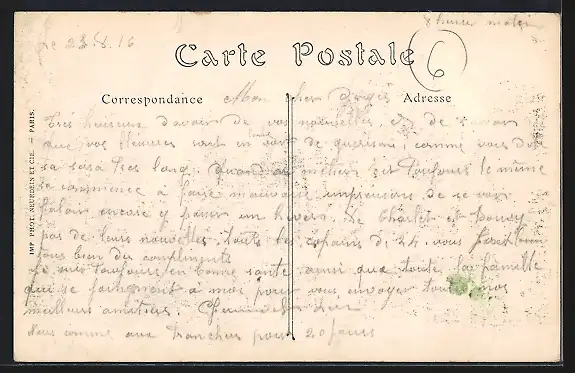 8 heures matin
le 23.8.16
Carte Postale
6
Correspondance
Adresse
Mon cher
Très heureux d'avoir de vos nouvelles, et de savoir
que vos blessures sont en voie de guérison, comme vous dites
sa sera très long. Quand au métier s'est toujours le même
se commence à faire mauvaise impression de se voir
falloir encore y passer un hiver. de Charlet et
pas de leurs nouvelles. touts les copains du 24. vous
tous bien du compliments
Je suis toujours en bonne santé ainsi que toute la famille
qui se joignent à moi pour vous envoyer tous nos
meilleurs amitiés.
Nous sommes aux tranchées pour 20 jours
IMP. PHOT. NEURDEIN ET CIE. — PARIS.